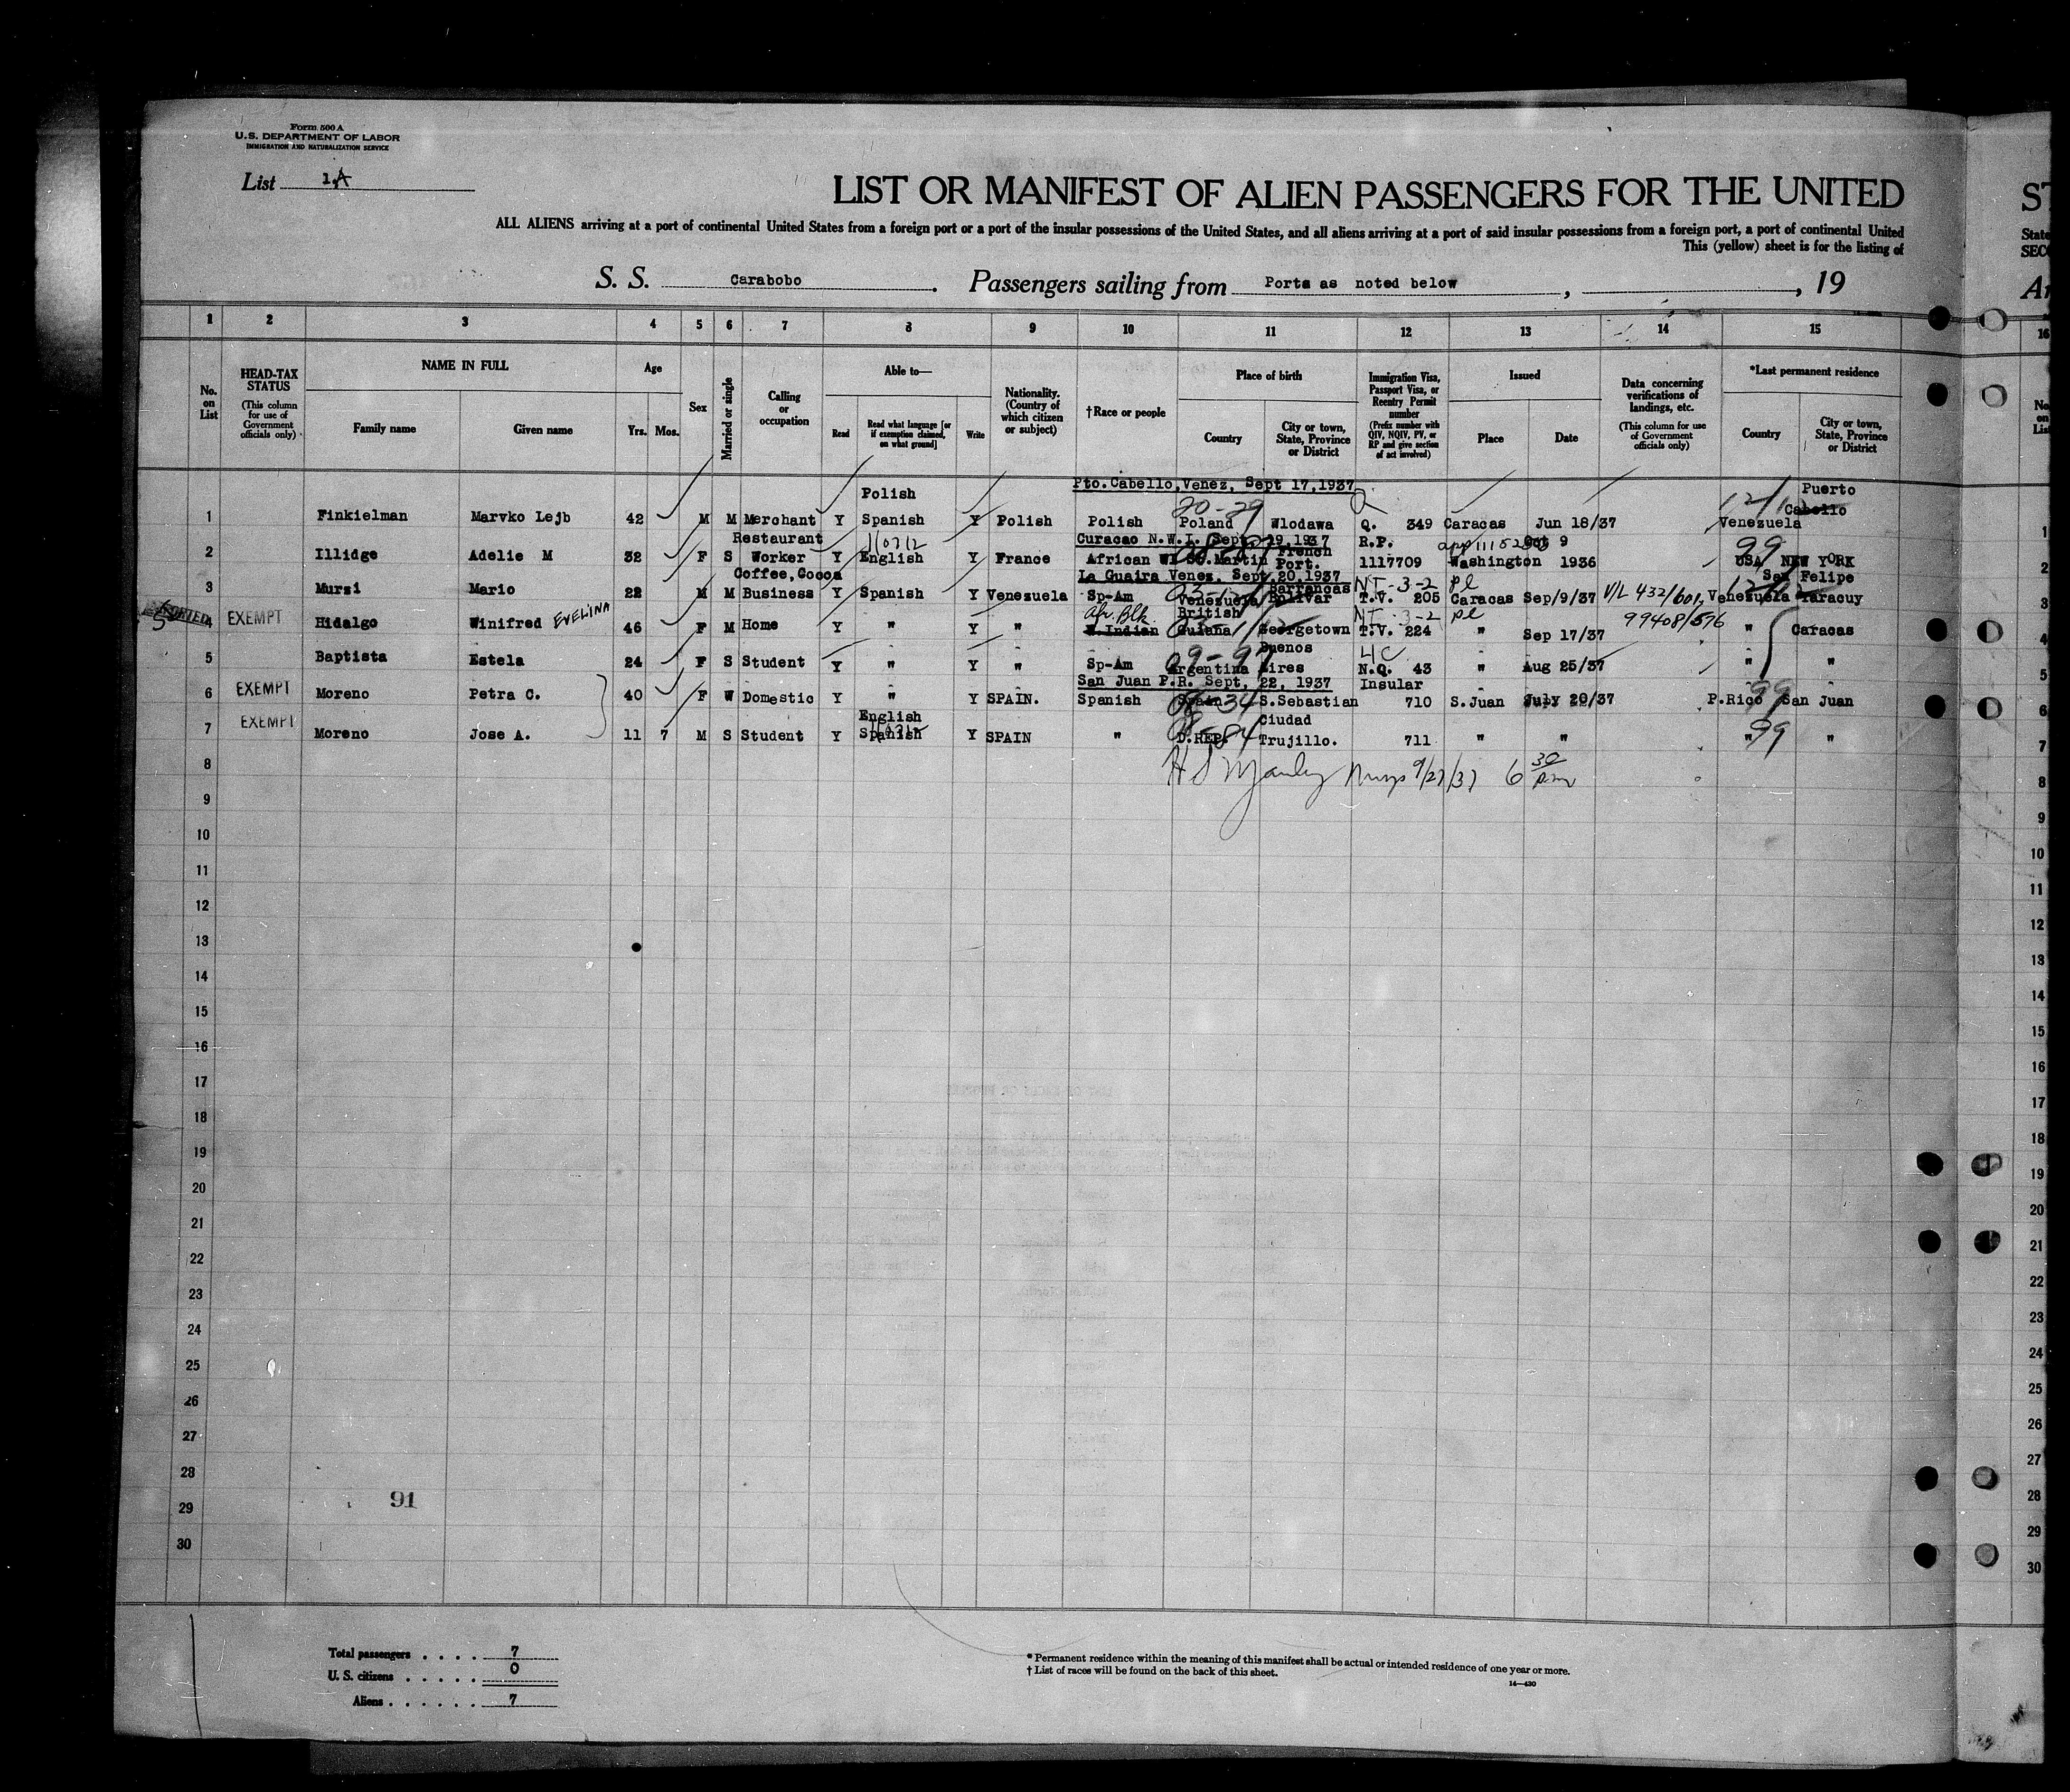 Form 500 A
U.S. DEPARTMENT OF LABOR
IMMIGRATION AND NATURALIZATION SERVICE
List 1A
LIST OR MANIFEST OF ALIEN PASSENGERS FOR THE UNITED ST
ALL ALIENS arriving at a port of continental United States from a foreign port or a port of the insular possessions of the United States, and all aliens arriving at a port of said insular possessions from a foreign port, a port of continental United State
This (yellow) sheet is for the listing of SECO
S. S. Carabobo. Passengers sailing from Ports as noted below, , 19
1 2 3 4 5 6 7 8 9 10 11 12 13 14 15 16
No. on List
HEAD-TAX STATUS (This column for use of Government officials only)
NAME IN FULL Family name Given name
Age Yrs. Mos.
Sex
Married or single
Calling or occupation
Able to— Read Read what language [or if exemption claimed, on what ground] Write
Nationality. (Country of which citizen or subject)
†Race or people
Place of birth Country City or town, State, Province or District
Immigration Visa, Passport Visa, or Reentry Permit number (Prefix number with QIV, NQIV, PV, or RP and give section of act involved)
Issued Place Date
Data concerning verifications of landings, etc. (This column for use of Government officials only)
*Last permanent residence Country City or town, State, Province or District
Pto.Cabello,Venez, Sept 17,1937
1 Finkielman Marvko Lejb 42 M M Merchant Y Polish Spanish Y Polish Polish Poland Wlodawa Q. 349 Caracas Jun 18/37 Venezuela Puerto Cabello
20-29
Curacao N.W.I. Sept. 19,1937
2 Illidge Adelie M 32 F S Restaurant Worker Y English Y France African WI St.Martin French Port. R.P. 1117709 Washington Oct 9 1936 USA NEW YORK
99
La Guaira Venez, Sept.20,1937
3 Mursi Mario 22 M M Coffee,Cocoa Business Y Spanish Y Venezuela Sp-Am Venezuela Barrancas Bolivar T.V. 205 Caracas Sep/9/37 V/L 432/601, Venezuela San Felipe Yaracuy
NT-3-2
4 EXEMPT Hidalgo Winifred EVELINA 46 F M Home Y " Y " W.Indian Afr. Blk British Guiana Georgetown T.V. 224 " Sep 17/37 99408/576 " Caracas
NT-3-2
5 Baptista Estela 24 F S Student Y " Y " Sp-Am Argentina Buenos Aires N.Q. 43 " Aug 25/37 " "
4C
San Juan P.R. Sept, 22, 1937
6 EXEMPT Moreno Petra C. 40 F W Domestic Y " Y SPAIN. Spanish Spain S.Sebastian Insular 710 S.Juan July 20/37 P.Rico San Juan
99
7 EXEMPT Moreno Jose A. 11 7 M S Student Y English Spanish Y SPAIN " D.REP. Ciudad Trujillo. 711 " " " "
99
9/27/37 6 30 pm
8
9
10
11
12
13
14
15
16
17
18
19
20
21
22
23
24
25
26
27
28
29
30
91
Total passengers 7
U. S. citizens 0
Aliens 7
* Permanent residence within the meaning of this manifest shall be actual or intended residence of one year or more.
† List of races will be found on the back of this sheet.
14—430